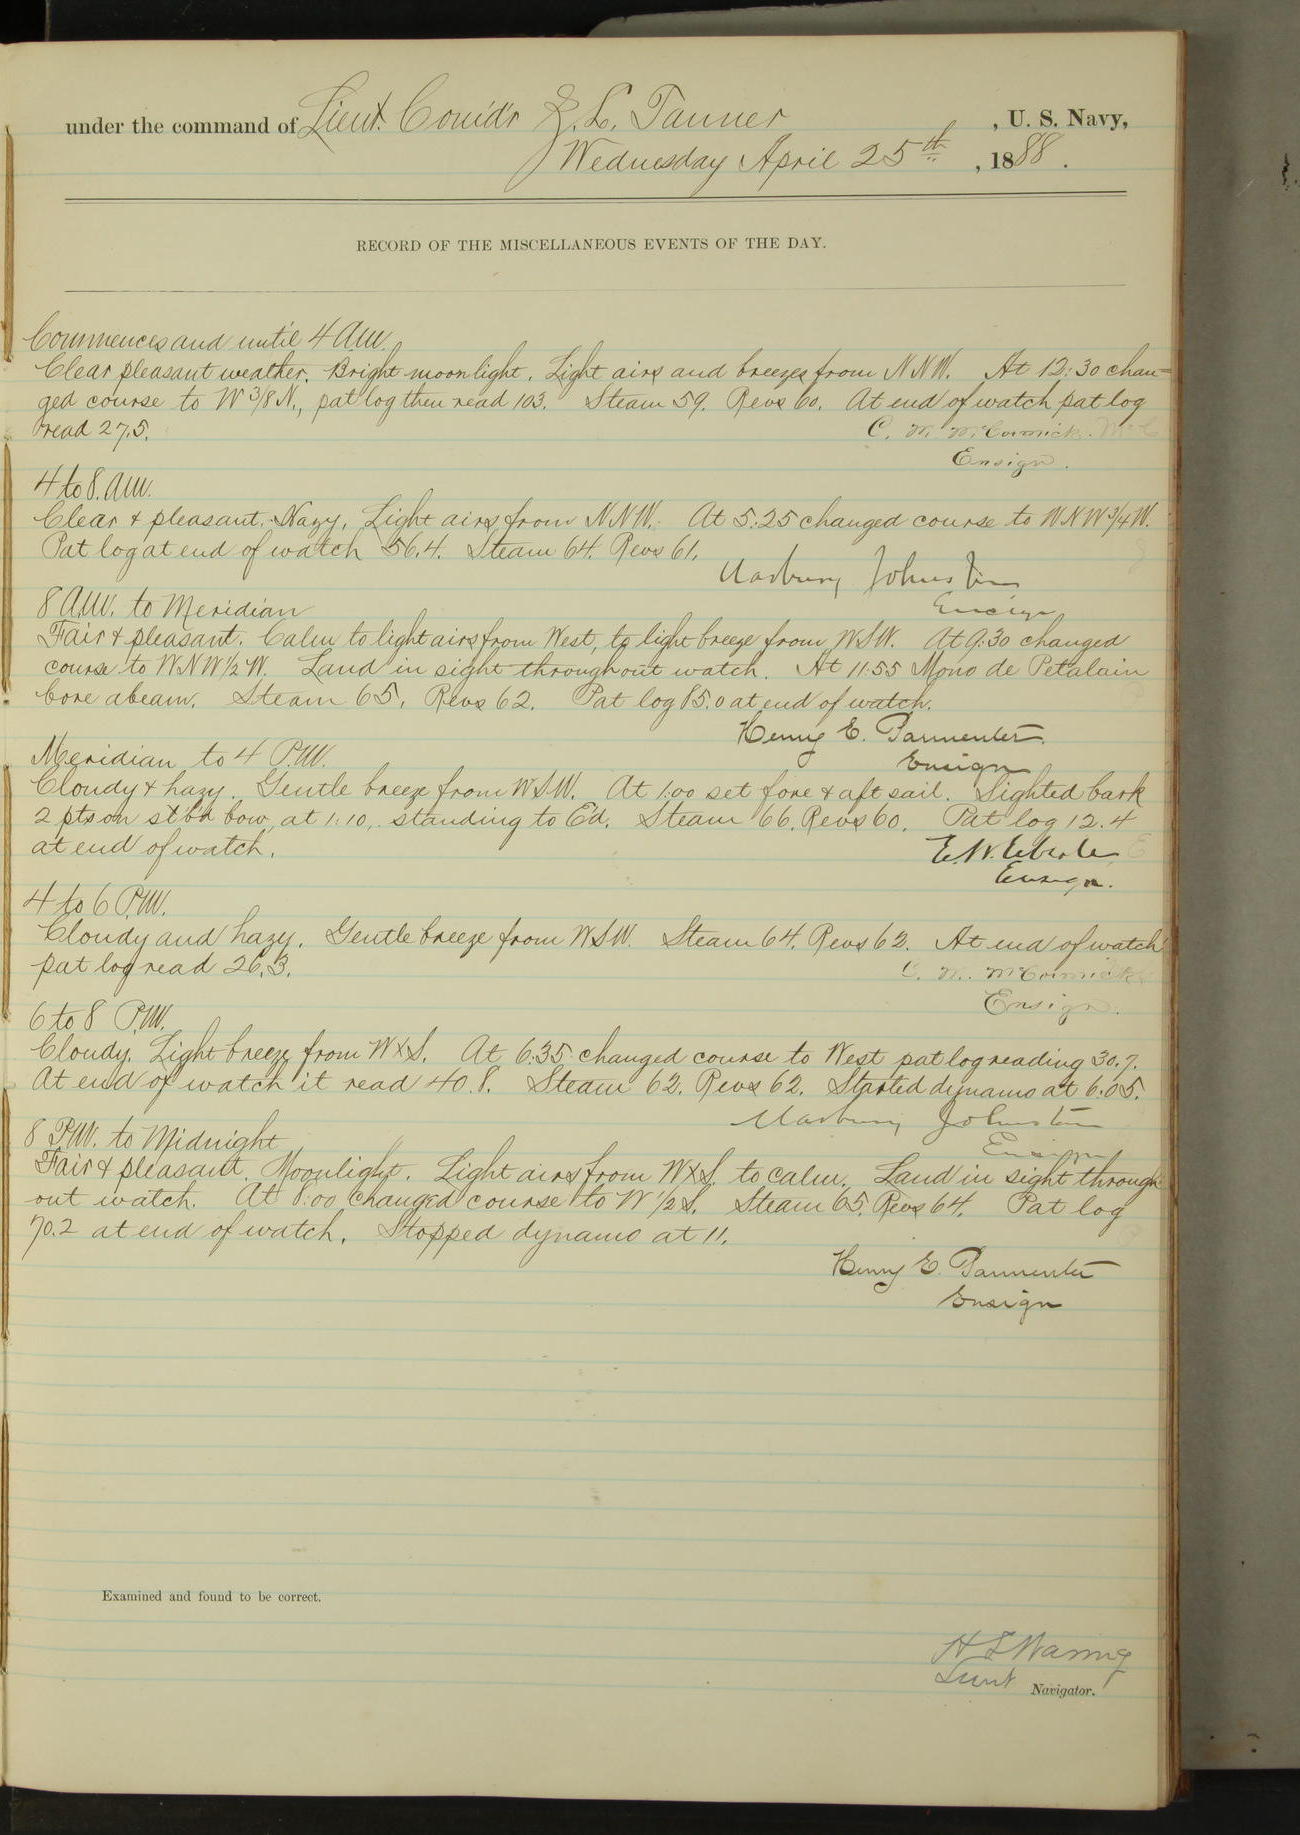 under the command of Lieut. Comd'r Z. L. Tanner, U. S. Navy,
Wednesday April 25th, 1888.
RECORD OF THE MISCELLANEOUS EVENTS OF THE DAY.
Commences and until 4 A.M.
Clear pleasant weather. Bright moonlight. Light airs and breezes from N N W. At 12:30 chan-
ged course to W 3/8 N., pat log then read 103. Steam 59. Revs 60. At end of watch pat log
read 27.5.
C. W. McCormick
Ensign.
4 to 8. A.M.
Clear & pleasant. Hazy. Light airs from N N W. At 5:25 changed course to W N W 3/4 W.
Pat log at end of watch 56.4. Steam 64. Revs 61.
Marbury Johnston
Ensign
8 A.M. to Meridian
Fair & pleasant. Calm to light airs from West, to light breeze from W S W. At 9.30 changed
course to W N W 1/2 W. Land in sight throughout watch. At 11:55 Mono de Petalain
bore abeam. Steam 65. Revs 62. Pat log 85.0 at end of watch.
Henry E. Parmenter
Ensign
Meridian to 4 P.M.
Cloudy & hazy. Gentle breeze from W S W. At 1:00 set fore & aft sail. Sighted bark
2 pts on stb'd bow, at 1:10, standing to E'd. Steam 66. Revs 60. Pat log 12.4
at end of watch.
E. W. Eberle
Ensign.
4 to 6 P.M.
Cloudy and hazy. Gentle breeze from W S W. Steam 64. Revs 62. At end of watch
pat log read 26.3.
C. W. McCormick
Ensign.
6 to 8 P.M.
Cloudy. Light breeze from W x S. At 6.35 changed course to West pat log reading 30.7.
At end of watch it read 40.8. Steam 62. Revs 62. Started dynamo at 6:05.
Marbury Johnston
Ensign
8 P.M. to Midnight
Fair & pleasant. Moonlight. Light airs from W x S. to calm. Land in sight through
out watch. At 8:00 changed course to W 1/2 S. Steam 65. Revs 64. Pat log
70.2 at end of watch. Stopped dynamo at 11.
Henry E. Parmenter
Ensign
Examined and found to be correct.
Waring
Lieut Navigator.